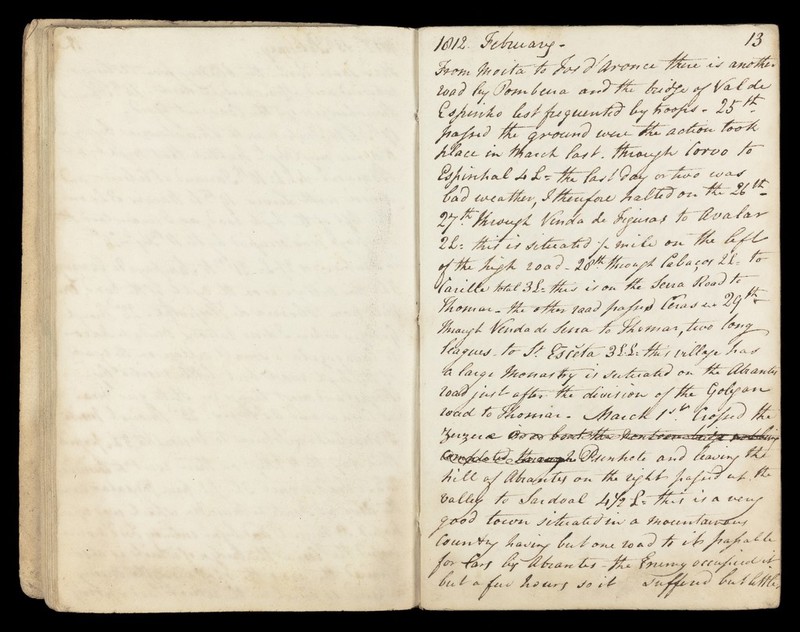 1812. February - 13
From Moita to Fos d'Aronce there is another
road by Pombeira and the bridge of Val de
Espinho best frequented by troops - 25th
passed the ground were the action took
place in March last. through Corvo to
Espinhal 4 L= the last day or two was
bad weather, I therefore halted on the 26th -
27th through Venda de Figuras to Avalar
2L= this is situated ½ mile on the left
of the high road - 28th through Cabaços 2L= to
total 3L= this is on the Serra Road to
Thomar - the other road passes 29th
through Venda de Serra to Thomar, two long
leagues - to St. Escita 3½L= this village has
a large Monastry is situated on the Abrantes
road just after the division of the Golegan
road to Thomar - March 1st Crossed the
Zezere Punhete and leaving the
hill of Abrantes on the right passed up the
valley to Sardoal 4½ L= this is a very
good town situated in a mountainous
Country having but one road to it passable
for Cars by Abrantes - the Enemy occupied it
but a few hours so it suffered but little,